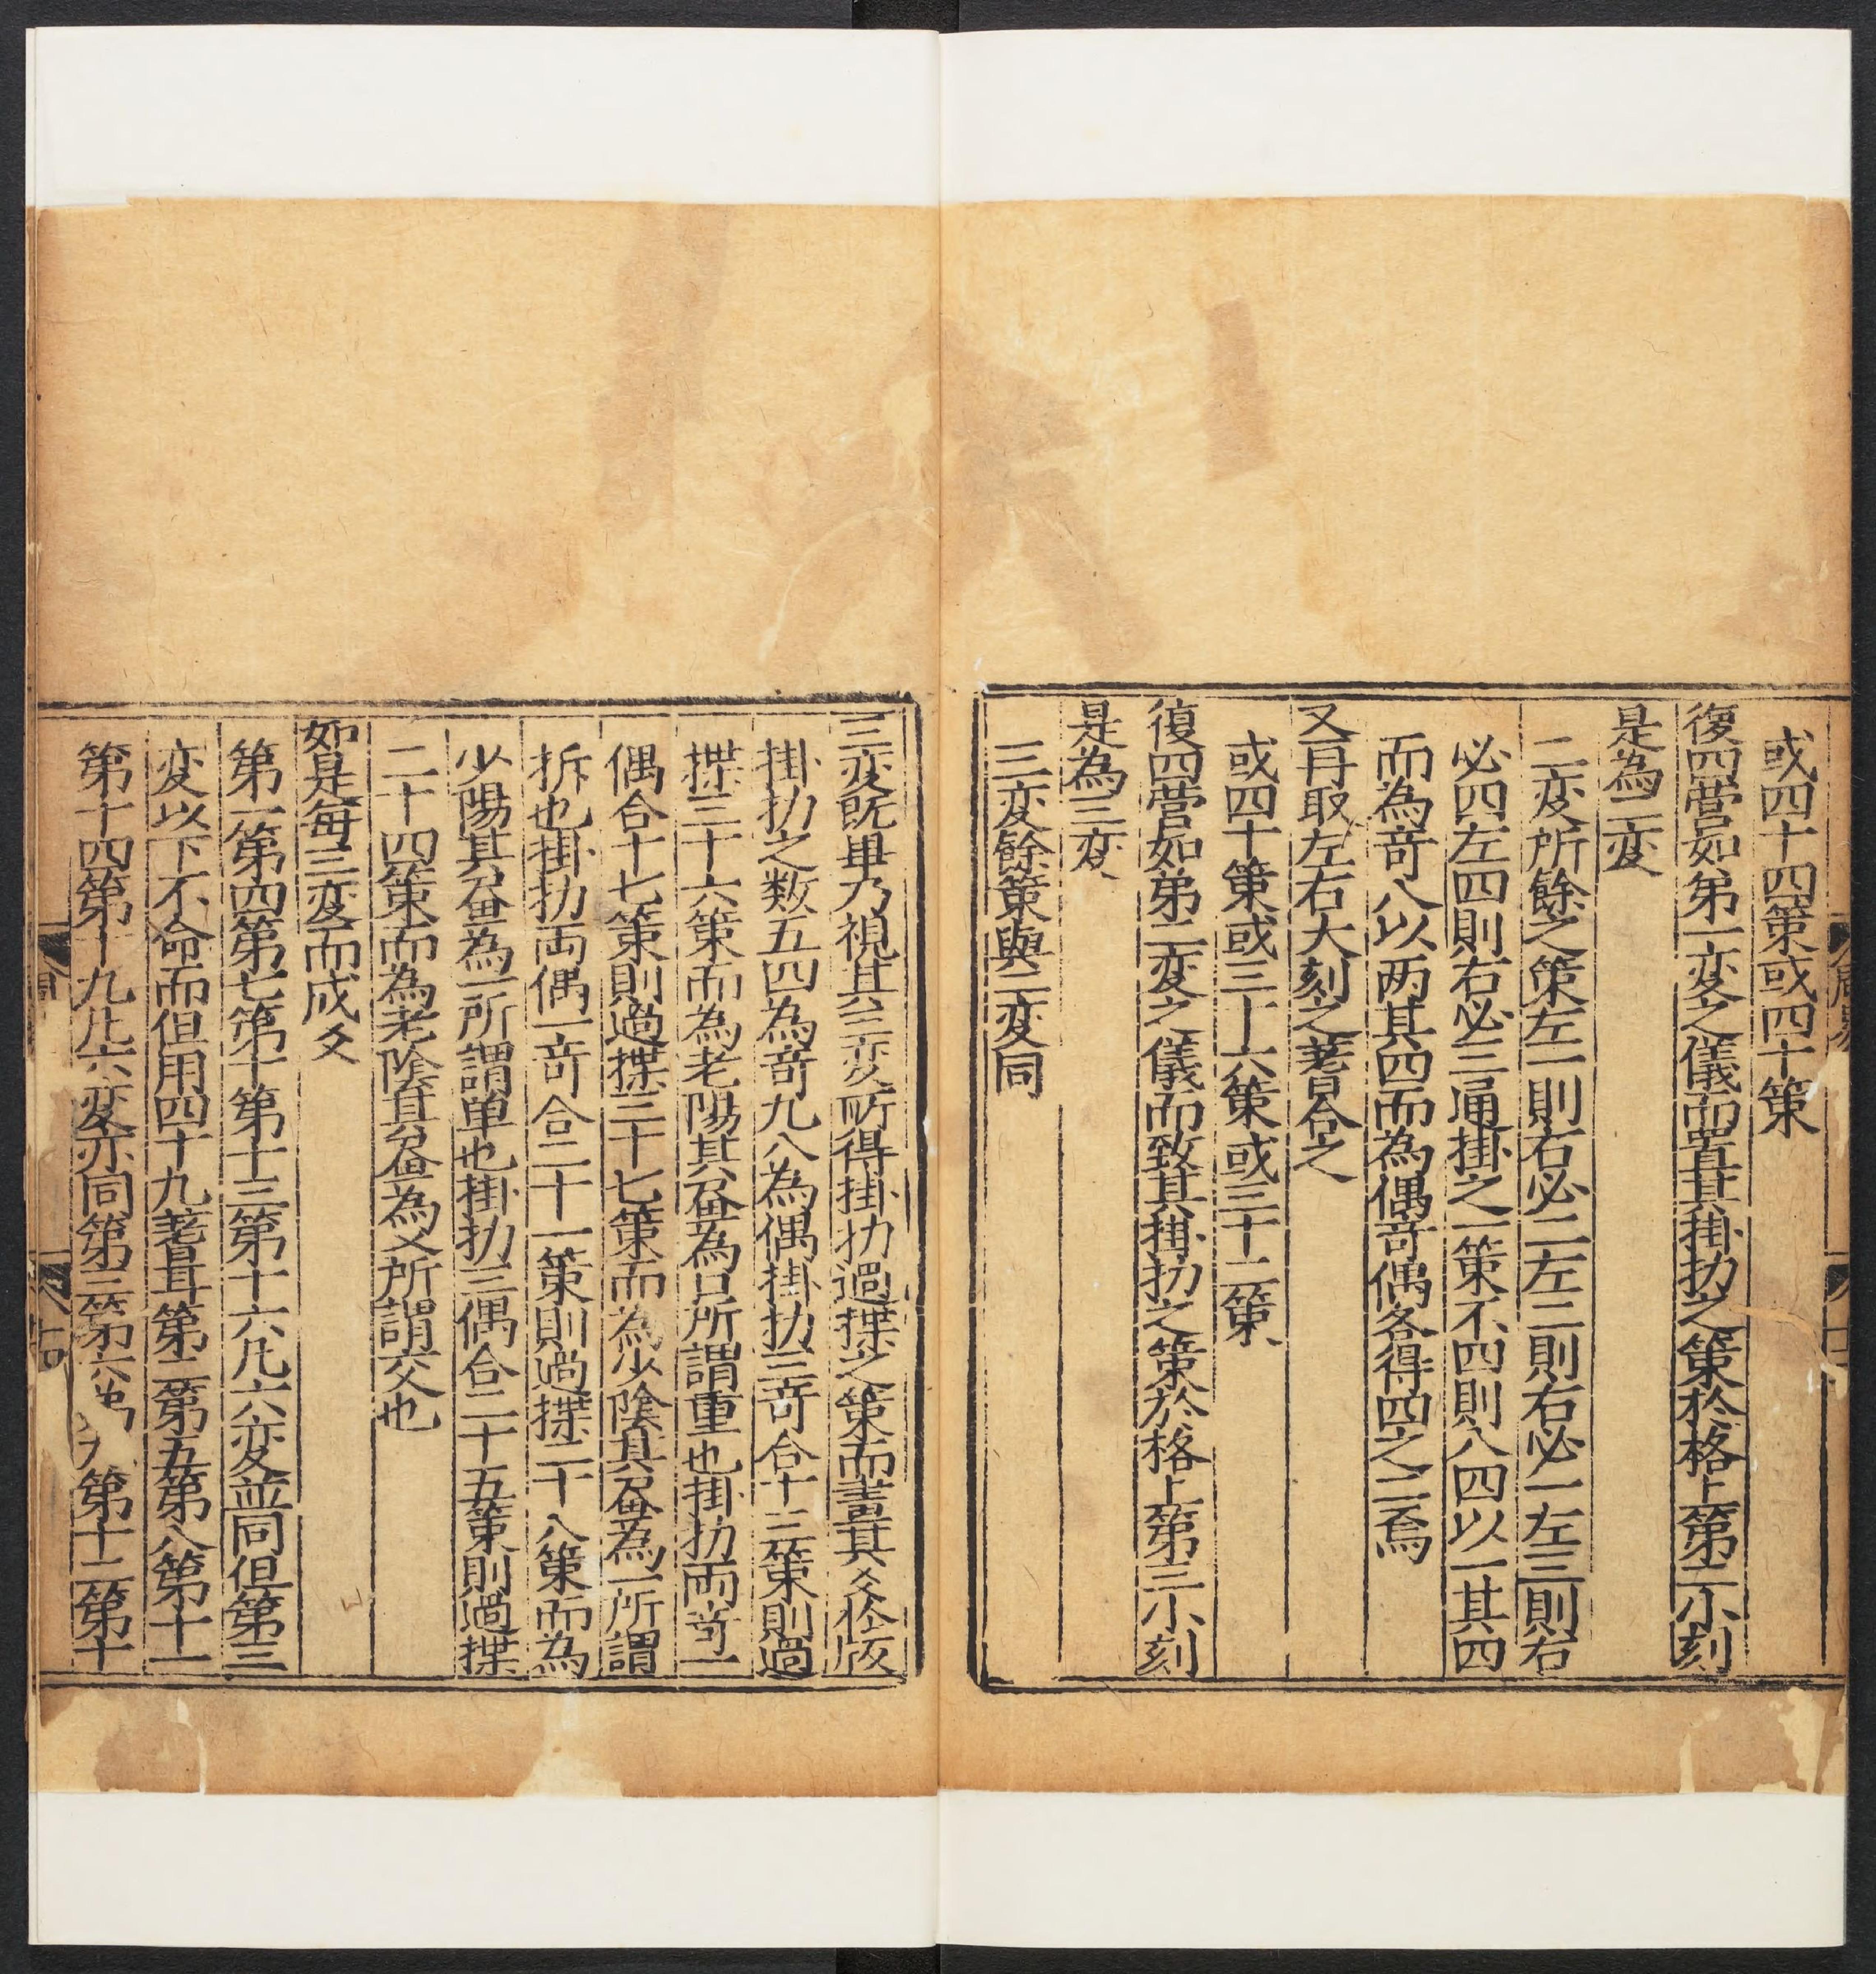 或四十四策或四十策
復四營如第一变之儀而置其掛扐之策於格上第二小刻
是為二变
二变所餘之策左一則右必二左二則右必一左三則右
必四左四則右必三通掛之一策不四則八四以一其四
而為奇八以两其四而為偶奇偶各得四之二焉
又再取左右大刻之蓍合之
或四十策或三十六策或三十二策
復四營如第二变之儀而致其掛扐之策於格上第三小刻
是為三变
三变餘策與二变同
三变既畢乃視其三变所得掛扐過揲之策而畫其爻於版
掛扐之数五四為奇九八為偶掛扐三奇合十三策則過
揲三十六策而為老陽其畫為口所謂重也掛扐两奇一
偶合十七策則過揲三十七策而為少陰其畫為一所謂
拆也掛扐两偶一奇合二十一策則過揲二十八策而為
少陽其畫為一所謂単也掛扐三偶合二十五策則過揲
二十四策而為老陰其畫為乂所謂交也
如是每三变而成爻
第一第四第七第十第十三第十六凡六变並同但第三
变以下不命而但用四十九蓍耳第二第五第八第十一
第十四第十九凡六变亦同第三第六第九第十二第十